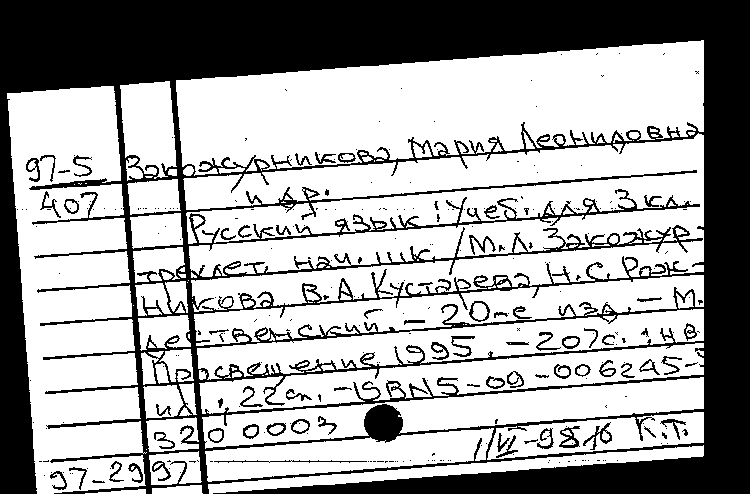 97-5 Закожурникова, Мария Леонидовна
407 и др.
Русский язык: Учеб. для 3 кл.
трехлет. нач. шк. / М.Л. Закожур-
никова, В.А. Кустарева, Н.С. Рож-
дественский. – 20-е изд. – М.
Просвещение, 1995. – 207с. :
ил.; 22см. – ISBN 5-09-006245-
320 0003
1/VI-98 К.Т.
97-2997